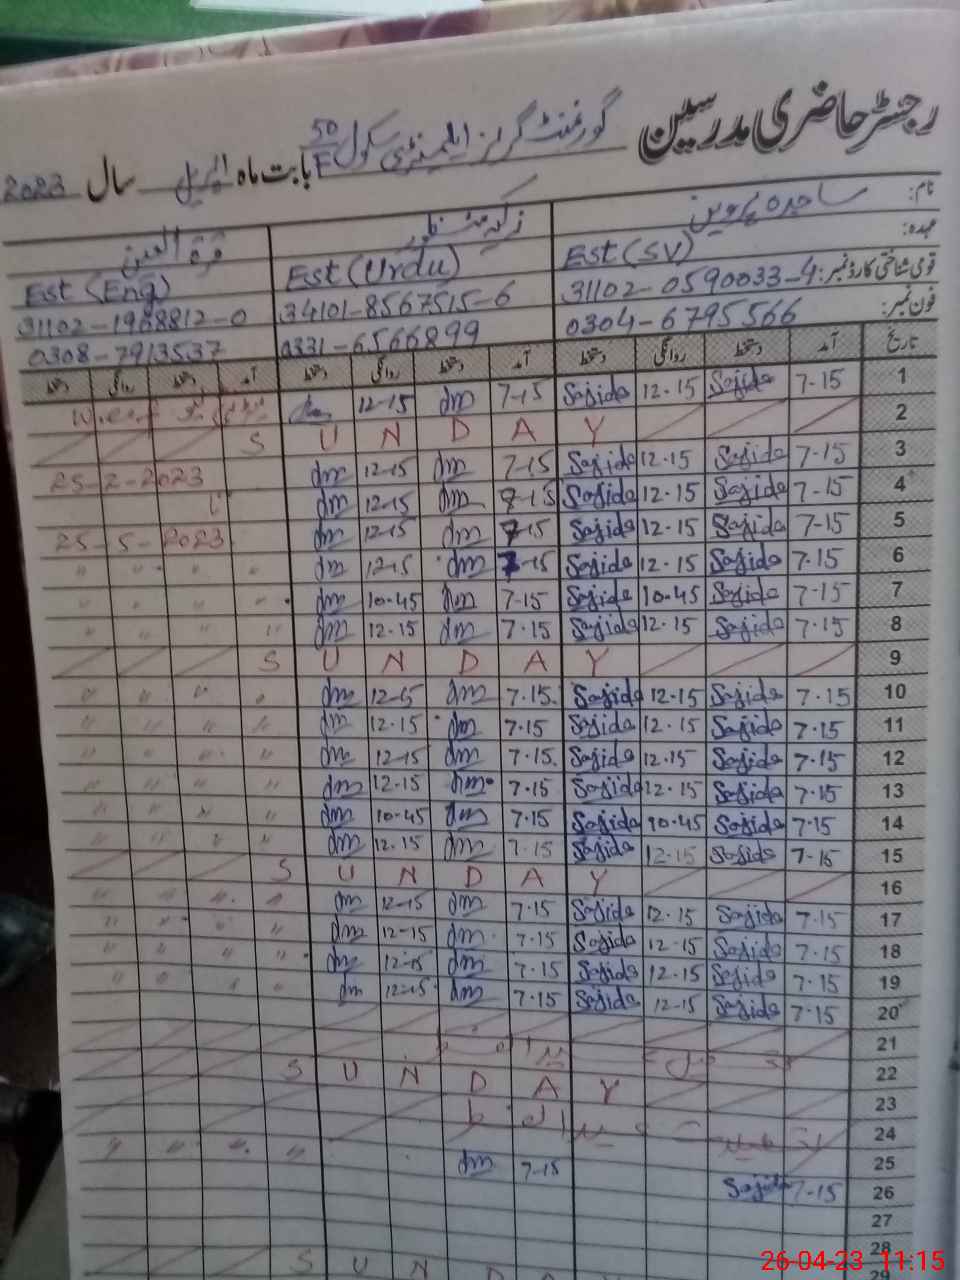 رجسٹر حاضری مدرسین گورنمنٹ گرلز ایلیمنٹری سکول 50/F بابت ماہ اپریل سال 2023
نام: ساجدہ پروین زکیہ منظور قرۃ العین
عہدہ: Est (SV) Est (Urdu) Est (Eng)
قومی شناختی کارڈ نمبر: 31102-0590033-4 34101-8567515-6 31102-1968812-0
فون نمبر: 0304-6795566 0331-6566899 0308-7913537
تاریخ آمد دستخط روانگی دستخط آمد دستخط روانگی دستخط آمد دستخط روانگی دستخط
1 7-15 Sajida 12-15 Sajida 7-15 dm 12-15 w.e.f
2 S U N D A Y
3 7-15 Sajida 12-15 Sajida 7-15 dm 12-15 dm 25-2-2023
4 7-15 Sajida 12-15 Sajida 7-15 dm 12-15 dm
5 7-15 Sajida 12-15 Sajida 7-15 dm 12-15 dm 25-5-2023
6 7-15 Sajida 12-15 Sajida 7-15 dm 12-15 dm " " " "
7 7-15 Sajida 10-45 Sajida 7-15 dm 10-45 dm " " " "
8 7-15 Sajida 12-15 Sajida 7-15 dm 12-15 dm " " " "
9 S U N D A Y
10 7-15 Sajida 12-15 Sajida 7-15 dm 12-15 dm " " " "
11 7-15 Sajida 12-15 Sajida 7-15 dm 12-15 dm " " " "
12 7-15 Sajida 12-15 Sajida 7-15 dm 12-15 dm " " " "
13 7-15 Sajida 12-15 Sajida 7-15 dm 12-15 dm " " " "
14 7-15 Sajida 10-45 Sajida 7-15 dm 10-45 dm " " " "
15 7-15 Sajida 12-15 Sajida 7-15 dm 12-15 dm " " " "
16 S U N D A Y
17 7-15 Sajida 12-15 Sajida 7-15 dm 12-15 dm " " " "
18 7-15 Sajida 12-15 Sajida 7-15 dm 12-15 dm " " " "
19 7-15 Sajida 12-15 Sajida 7-15 dm 12-15 dm " " " "
20 7-15 Sajida 12-15 Sajida 7-15 dm 12-15 dm " " " "
21
22
23 S U N D A Y
24
25 7-15 dm " " " "
26 7-15 Sajida
27
28
29 S U N D A Y
26-04-23 11:15